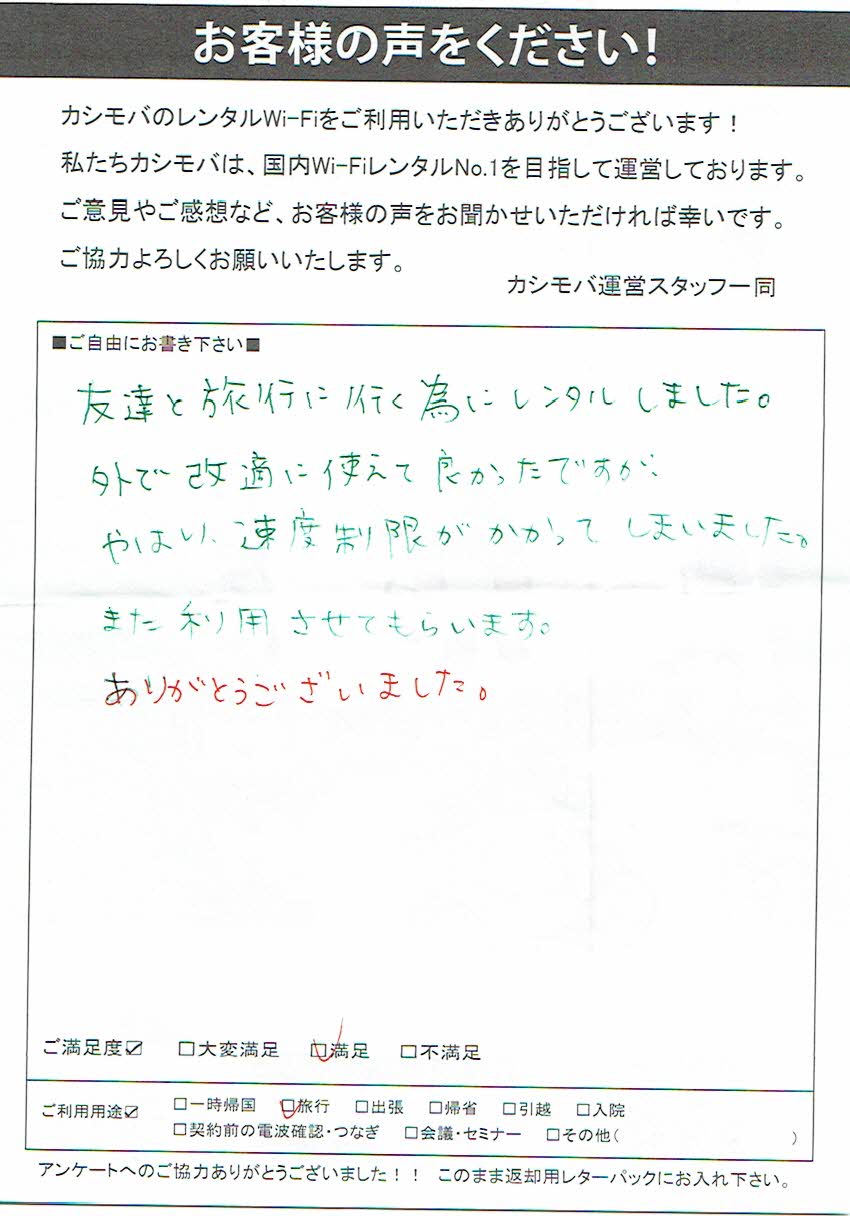 お客様の声をください!
カシモバのレンタルWi-Fiをご利用いただきありがとうございます！
私たちカシモバは、国内Wi-FiレンタルNo.1を目指して運営しております。
ご意見やご感想など、お客様の声をお聞かせいただければ幸いです。
ご協力よろしくお願いいたします。
カシモバ運営スタッフ一同
■ご自由にお書き下さい■
友達と旅行に行く為にレンタルしました。
外で改適に使えて良かったですが、
やはり、速度制限がかかってしまいました。
また利用させてもらいます。
ありがとうございました。
ご満足度☑ □大変満足 ☑満足 □不満足
ご利用用途☑ □一時帰国 ☑旅行 □出張 □帰省 □引越 □入院
□契約前の電波確認・つなぎ □会議・セミナー □その他( )
アンケートへのご協力ありがとうございました！！ このまま返却用レターパックにお入れ下さい。